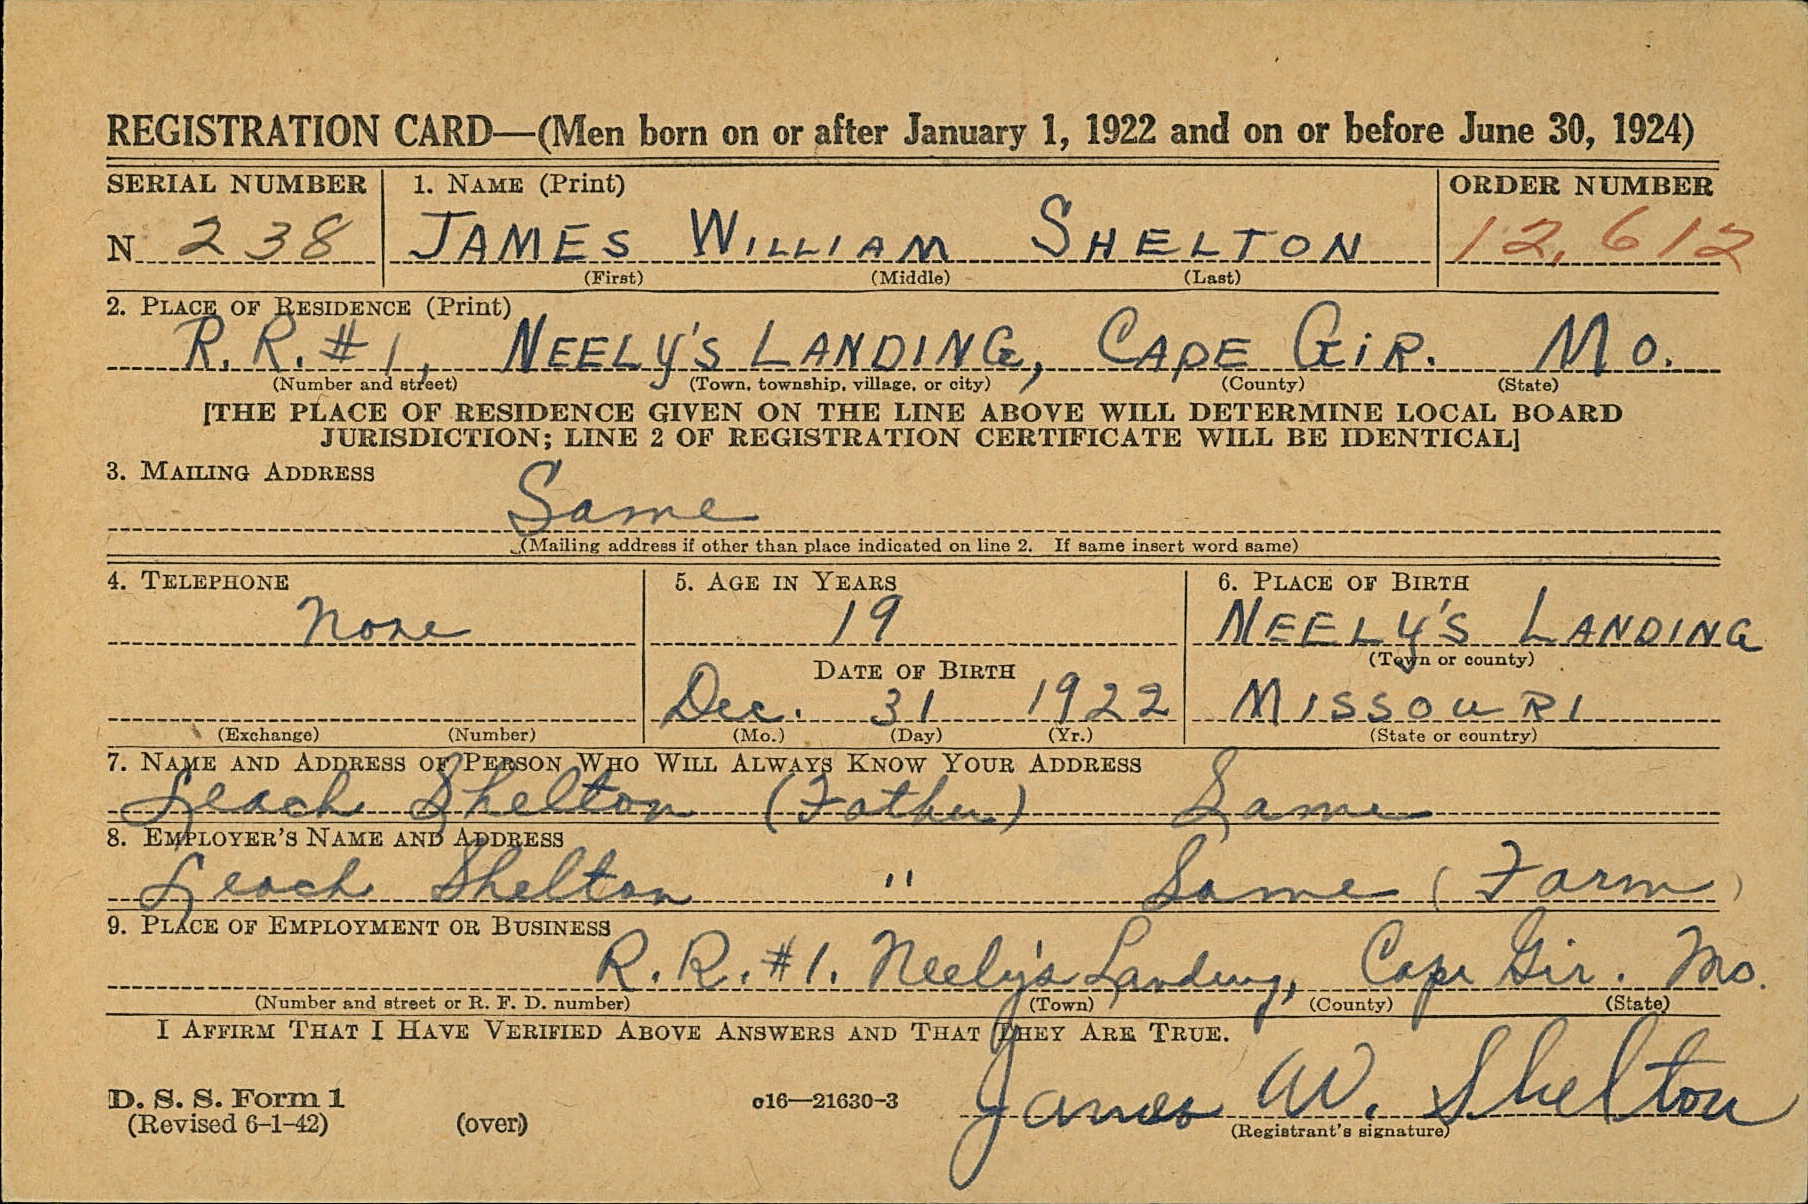 REGISTRATION CARD—(Men born on or after January 1, 1922 and on or before June 30, 1924)
SERIAL NUMBER 1. NAME (Print) ORDER NUMBER
N 238 JAMES WILLIAM SHELTON 12,612
(First) (Middle) (Last)
2. PLACE OF RESIDENCE (Print)
R. R. #1, NEELY'S LANDING, CAPE GIR. MO.
(Number and street) (Town, township, village, or city) (County) (State)
[THE PLACE OF RESIDENCE GIVEN ON THE LINE ABOVE WILL DETERMINE LOCAL BOARD
JURISDICTION; LINE 2 OF REGISTRATION CERTIFICATE WILL BE IDENTICAL]
3. MAILING ADDRESS
Same
(Mailing address if other than place indicated on line 2. If same insert word same)
4. TELEPHONE 5. AGE IN YEARS 6. PLACE OF BIRTH
None 19 NEELY'S LANDING
DATE OF BIRTH (Town or county)
Dec. 31 1922 MISSOURI
(Exchange) (Number) (Mo.) (Day) (Yr.) (State or country)
7. NAME AND ADDRESS OF PERSON WHO WILL ALWAYS KNOW YOUR ADDRESS
Leach Shelton (Father) Same
8. EMPLOYER'S NAME AND ADDRESS
Leach Shelton " Same (Farm)
9. PLACE OF EMPLOYMENT OR BUSINESS
R. R. #1. Neely's Landing, Cape Gir. Mo.
(Number and street or R. F. D. number) (Town) (County) (State)
I AFFIRM THAT I HAVE VERIFIED ABOVE ANSWERS AND THAT THEY ARE TRUE.
D. S. S. Form 1
(Revised 6-1-42) (over) c16—21630-3 James W. Shelton
(Registrant's signature)